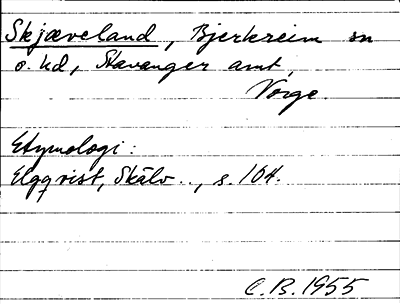 Skjæveland, Bjerkreim sn
o. hd, Stavanger amt,
Norge.
Etymologi:
Elgqvist, Skälv.., s. 104.
C.B. 1955